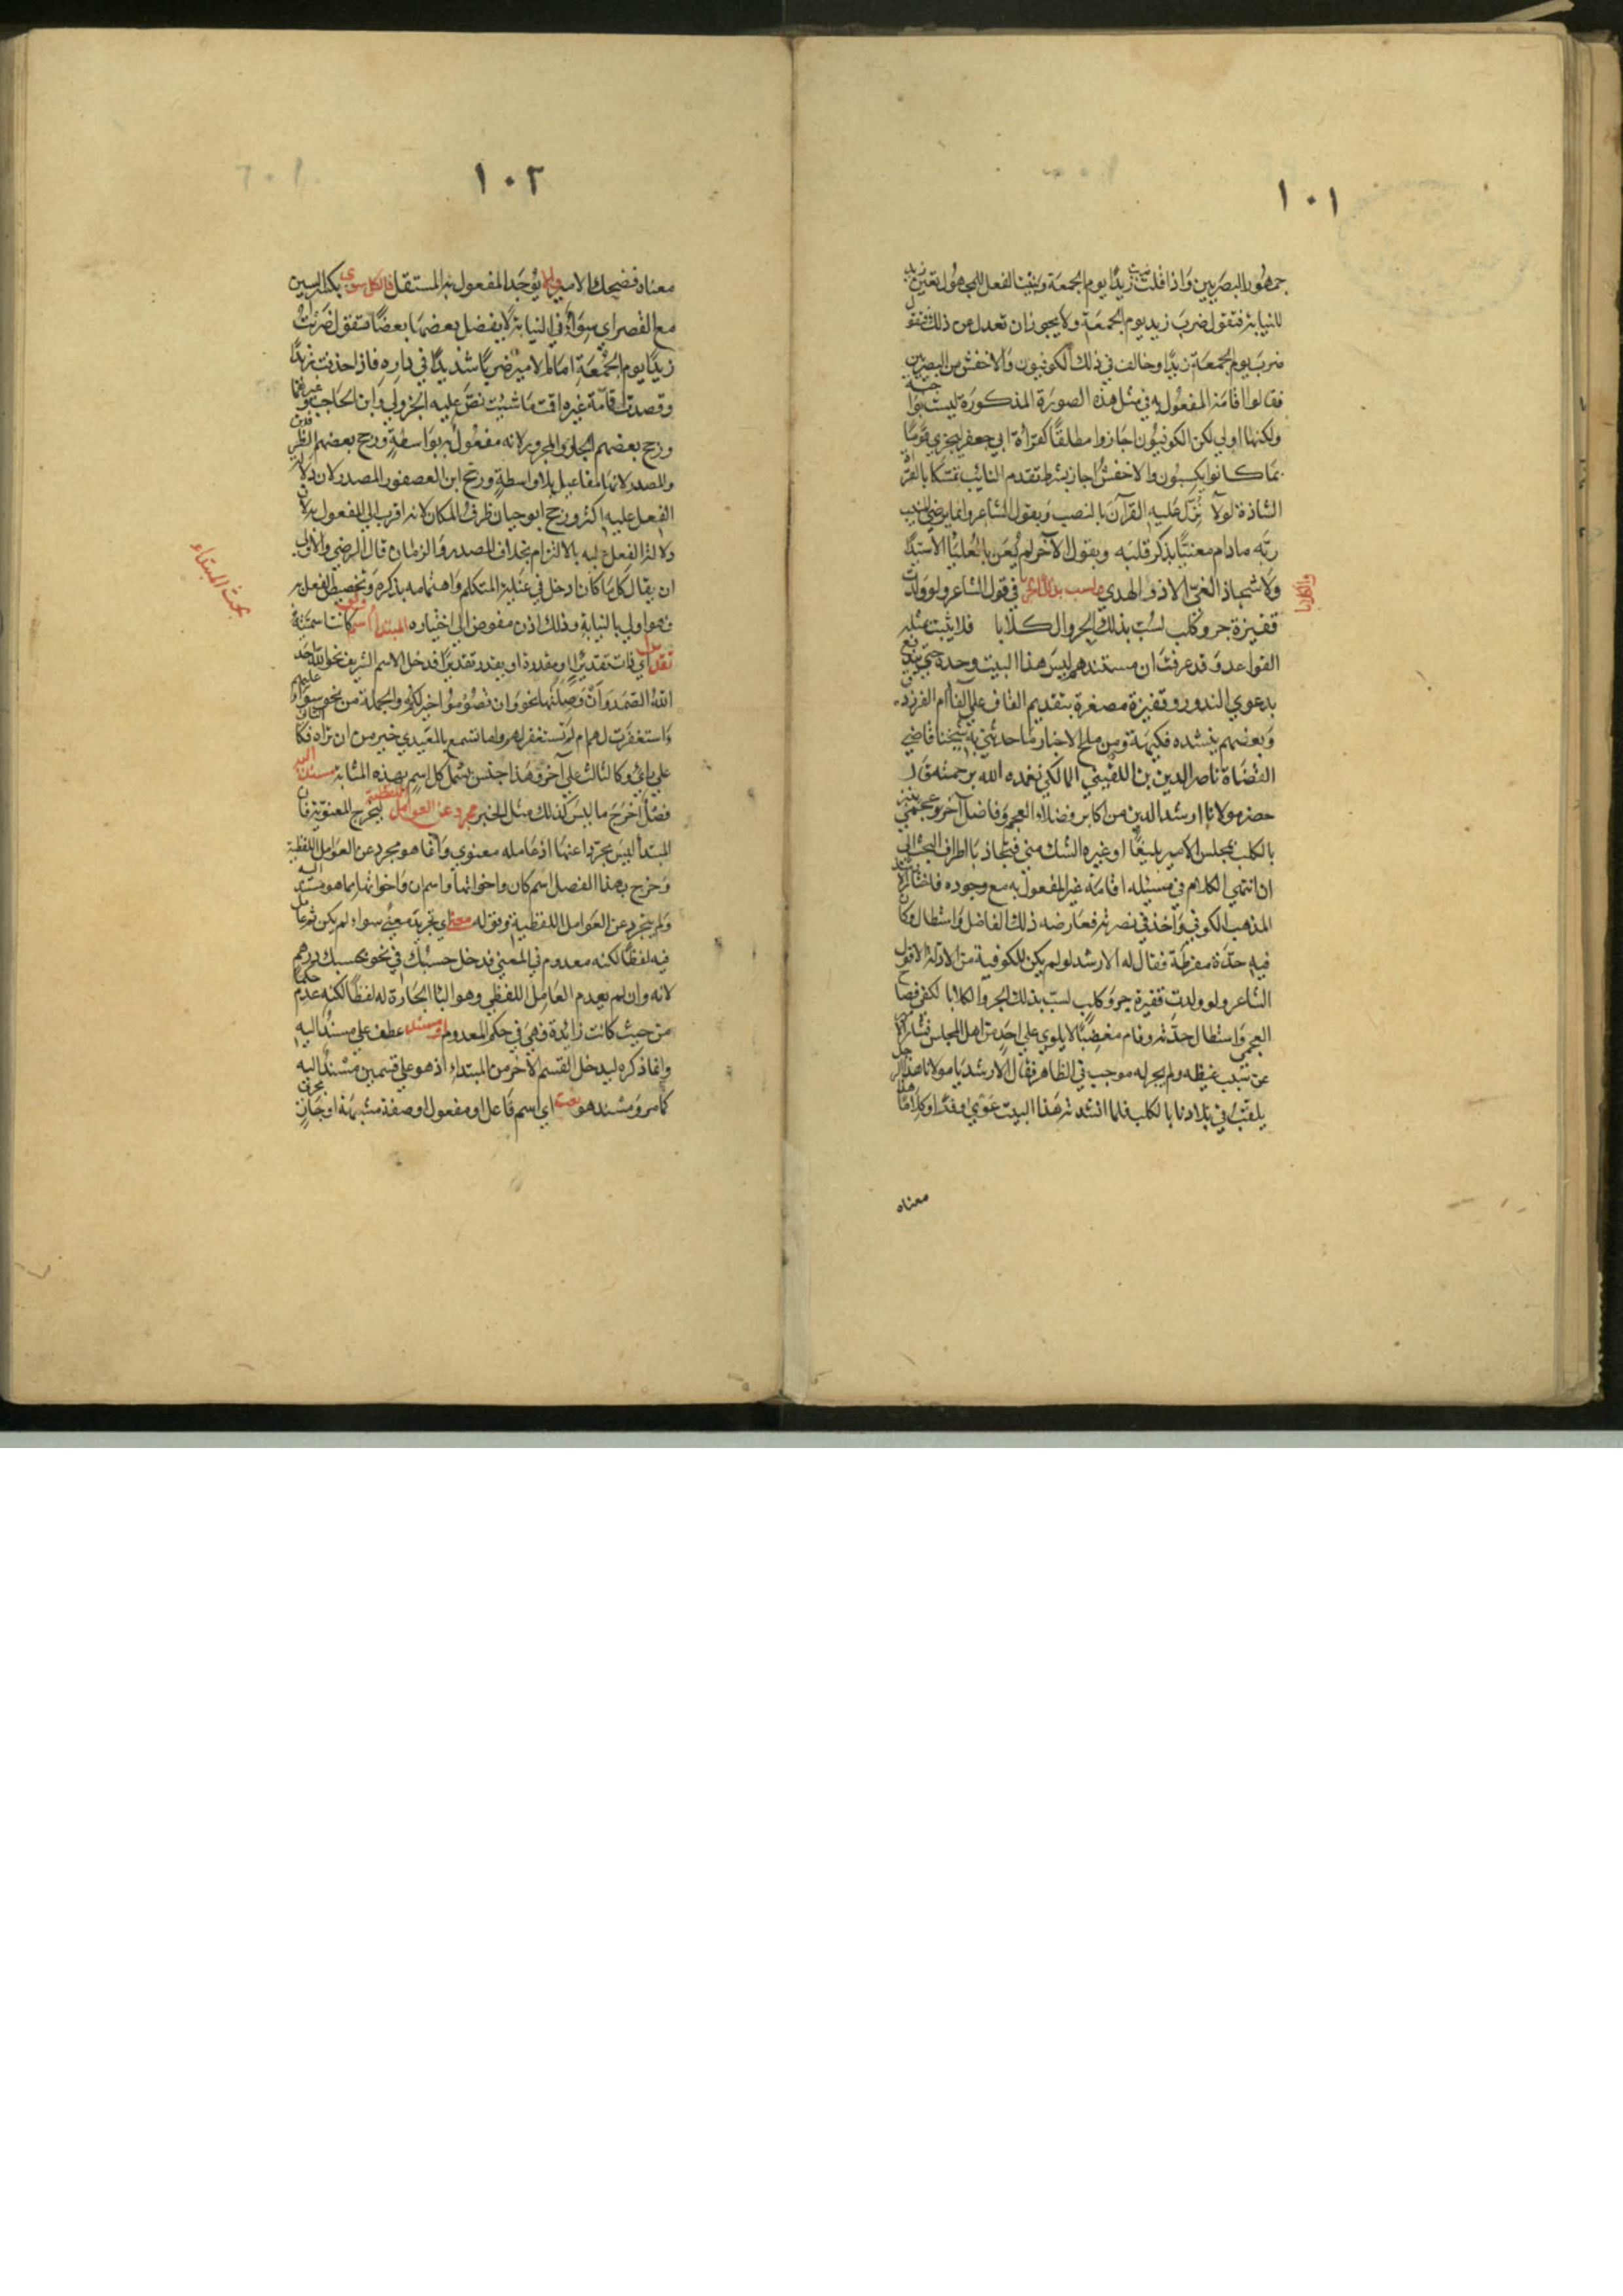 ١٠١
جمهور البصريين وَاذا قلت ضربت زيدًا يوم الجمعَة وَبنيت الفعل للمجهول تعين زيد
للنيابة فتقول ضربَ زيد يوم الجمعَة ولا يجوز ان تعدل عن ذلك فتقول
ضربَ يوم الجمعَة زيدًا وخالف في ذلك الكوفيون وَالاخفش من البصريين
فقالوا اقامة المفعُول به في مثل هذه الصورَة المذكورَة ليست بواجبة
ولكنها اولي لكن الكوفيُون اجَازوا مطلقًا كقرَأة ابي جعفر ليجزي قومًا
بمَا كانوا يكسبُون والاخفشُ اجاز بشرط تقدم النائب تمسّكا بالقرأة
الشاذة لولآ نُزّل عَليهِ القرآنَ بالنصب وَبقول الشاعر وانما يرضي المنيب
ربّه مادام معنيًّا بذكرٍ قلبَه وبقول الآخر لم يُعنَ بالعُليَا الاسَيّدًا
ولا شجا ذا الغيّ الا ذو الهدي ولسب بذلك الجرو في قول الشاعر ولو ولدت
والكلابا
قفيزة جرو كلب لسُبّ بذلك الجرو الكلابا فلا يثبت بمثله
القواعد وَقد عرفتَ ان مستندهم ليسَ هذا البيت وحده حتي يندفع
بدعوي الندور وقفيزة مصغرة بتقديم القاف علي الفاء ام الفرزدق
وَبعضهم ينشده فكيهَة ومن ملح الاخبار مَا حدثني به شيخنا قاضي
القضَاة ناصر الدين بن اللقيني المالكي تغمده الله برحمته قَال
حضر مولانا ارشد الدين من اكابر فضلاء العجم وَفاضل آخر عجمي
بالكلب بمجلس الامير يلبغَا او غيره الشك مني فتجاذبَا اطراف البحث الي
ان انتهي الكلام في مسئله اقامَة غير المفعول به مع وجوده فاختار الارشد
المذهب الكوفي وَاخذ في نصرته فعَارضه ذلك الفاضل وَاستطال وكان
فيه حدّة مفرطَة فقال له الارشد لو لم يكن للكوفية من الادلة الا قول
الشاعر ولو ولدت قفيزة جروَ كلبٍ لسبّ بذلك الجرو الكلابا لكفي فصاح
العجمي وَاستطال حدّته وقام مغضبًا لا يلوي علي احَدٍ من اهل المجلس
عن سَبب غيظه ولم يجر له موجب في الظاهر فقال الارشد يَا مولانا هذا الرجل
يلقبُ في بلادنا بالكلب فلما انشدته هَذا البيت
معناه
١٠٢
معناه فضحك الامير وان لم يوجَد المفعول به المستقل فالكل سوي بكسر السين
مع القصر اي سَوَاءٌ في النيابة لا يفضل بعضهَا بعضًا فتقول ضرَبتُ
زيدًا يوم الجُمعَةِ امَام الامير ضربًا شديدًا في دارهِ فاذا حذفت زيدًا
وقصدت اقامة غيره اقمت مَا شيئت نصّ عليه الجزولي وَابن الحَاجب وغيرهما
ورجح بعضهم الجار وَالمجرور لانه مفعُولٌ به بوَاسطةٍ ورجح بعضهم الظرفين
وَالمصدر لانها مفاعيل بلا واسطةٍ ورجح ابن العصفور المصدر لان دلالة
الفعل عليه اكثر ورجح ابوحيان ظرف المكان لانه اقرب الي المفعول به لان
دلالة الفعل عليه بالالتزام بخلاف المصدر وَالزمان قال الرضي والاولي
ان يقال كل مَا كان ادخل في عنَاية المتكلم وَاهتمامه بذكره وَتخصيص الفعل به
فهو اولي بالنيابة وذلك اذن مفوض الي اختياره المبتدأ اسم ولو كانت اسميته
بحث المبتداء
تقديرًا اي ذات تقديرًا او مقدرة او يقدر تقديرًا فدخل الاسم الشريف نحو الله احد
اللهُ الصّمَد وَاَنْ وَصلتُها نحو وَان تصُومُوا خير لكم وَالجملة من نحو سواءٌ عليهم
ءَاستغفرت لهم ام لم تستغفر لهم ولما تسمع بالمعَيدي خير من ان تراه
علي رايٍ وكالثالث علي آخر وَهَذا جنس يشمل كل اسمٍ بهذه المثابة مسند اليه
فصْلٌ اَخرَجَ ما ليسَ كذلك مثل الخبر مجرد عن العوامل اللفظية ليخرج المعنويّة فان
المبتدأ ليسَ مجردا عنهَا اذ عَامله معنوي وَانما هو مجرد عن العوامل اللفظية
وَخرج بهذا الفصل اسَم كان واخواتها وَاسم ان وَاخواتها مما هو مسند اليه
وَلم يتجرد عن العَوامل اللفظية وقوله معني اي تجريدًا معنيً سواء لم يكن ثم عامل
فيه لفظًا لكنه معدوم في المعني فدخل حسبك في نحو بحسبك درهم
لانه وان لم يعدم العَامِل اللفظي وهو البا الجَارة له لفظًا لكنه عدم حكمًا
من حيث كانت زائدة فهيَ في حكم المعدوم او مسند عطف علي مسندٌ اليه
وانما ذكره ليدخل القسم الاخر من المبتداء اذ هو علي قسمين مسندٌ اليه
كما مر وَمسند هو نعت اي اسم فاعل او مفعول او صفة مشبهَة